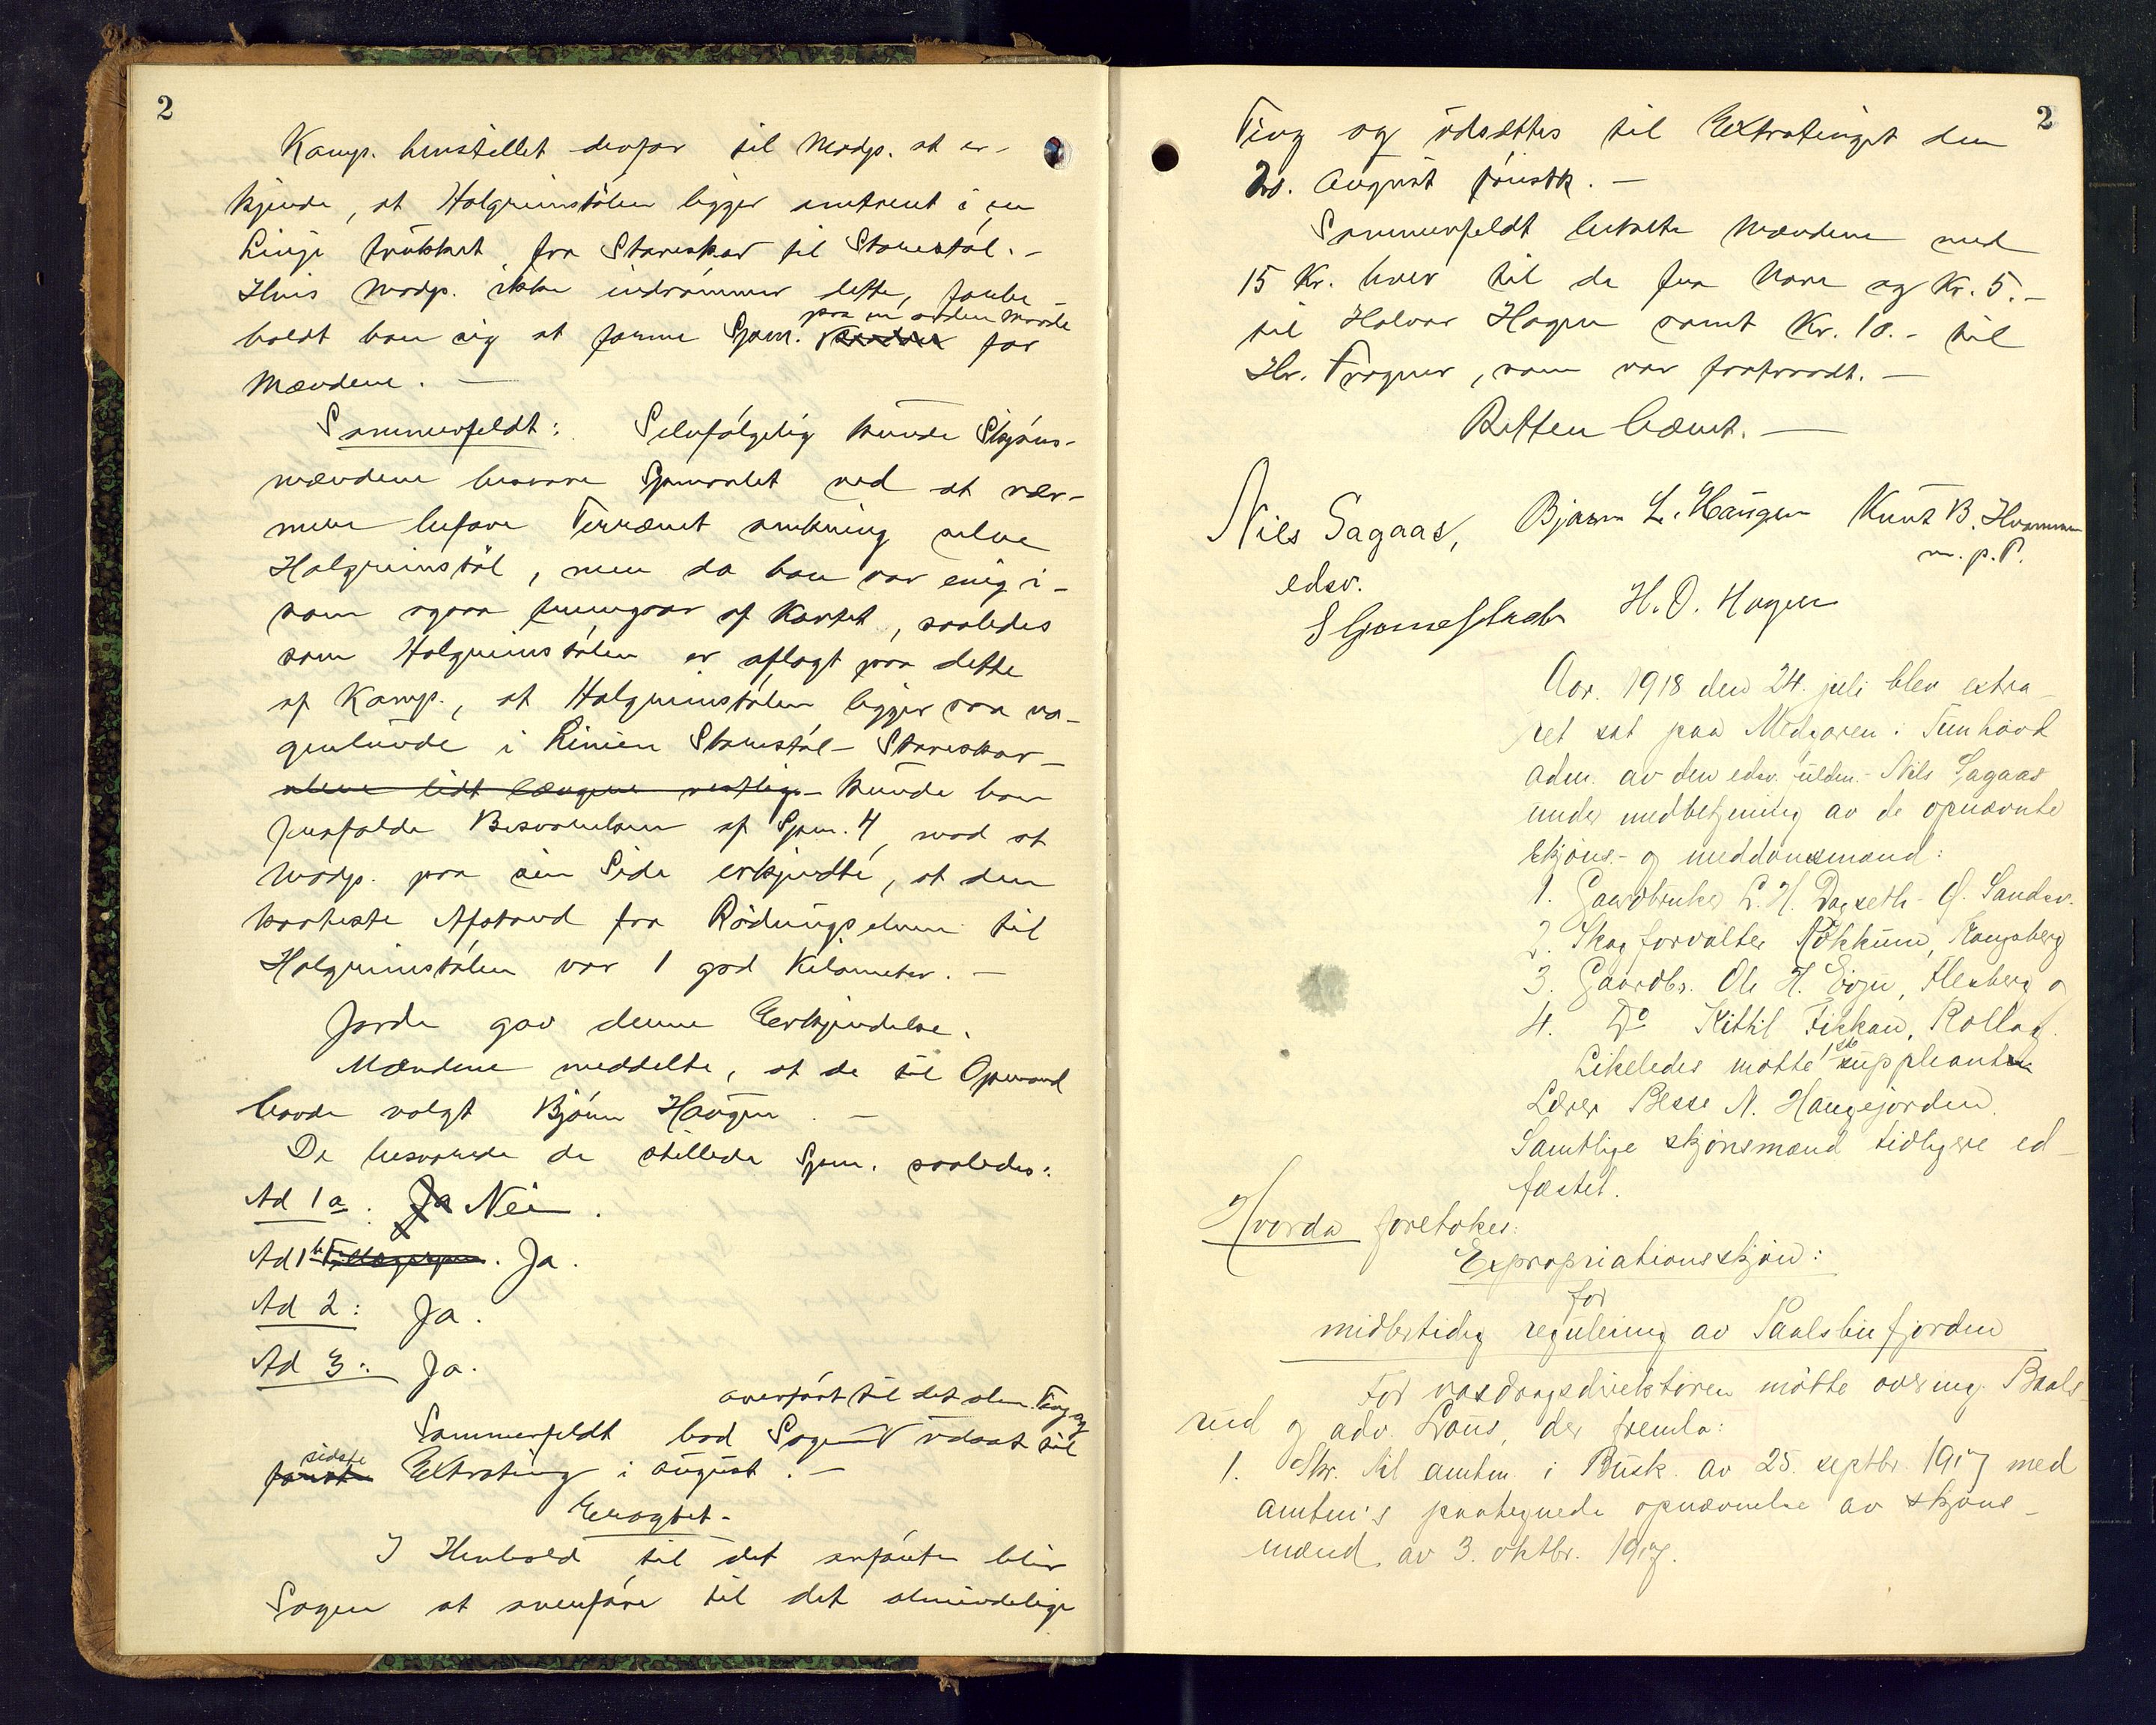 2
Kamp. henstillet derfor til Modp. at er-
kjende, at Halgrimstölen ligger omtrent i en
Linje trukket fra Stareskar til Starestöl. -
Hvis Modp. ikke indrömmer dette, forbe-
paa en anden Maade
holdt han sig at forme Spm. for
Mændene. -
Sommerfeldt: Selvfölgelig kunde Skjöns-
mændene besvare Spmaalet ved at nær-
mere befare Terrænet omkring selve
Halgrimstöl, men da han var enig i-
som ogsaa fremgaar af Kartet, saaledes
som Halgrimstölen er aflagt paa dette
af Kamp., at Halgrimstölen ligger saa no-
genlunde i Linien Starestöl - Stareskar -
alene lidt længere vestlig - kunde han
frafalde Besvarelsen af Spm. 4, mod at
Modp. paa sin Side erkjendte, at den
korteste Afstand fra Rödungselven til
Halgrimstölen var 1 god Kilometer. -
Jorde gav denne Erkjendelse.
Mændene meddelte, at de til Opmand
havde valgt Björn Haugen. -
De besvarede de stillede Spm. saaledes:
Ad 1a: Ja Nei.
Ad 1b Tillægsspm. Ja.
Ad 2: Ja.
Ad 3: Ja.
overfört til det alm. Ting og
Sommerfeldt bad Sagen udsat til
sidste
först Extrating i August. -
Eragtet -
I Henhold til det anförte blir
Sagen at overföre til det almindelige
2
Ting og udsættes til Extratinget den
August förstk. -
Sommerfeldt betalte Mændene med
15 Kr. hver til de fra Nore og Kr. 5.-
til Halvor Hagen samt Kr. 10.- til
Hr. Fragner, som var fratraadt. -
Retten hævet. -
Nils Sagaas, Bjørn L. Haugen Knut B. Hvammen
edsv. m. p. P.
H. O. Hagen
Aar. 1918 den 24. juli blev extra-
ret sat paa Medgaren i Tunhovd
adm. av den edsv. fuldm. Nils Sagaas
under medbetjening av de opnævnte
skjøns- og meddomsmænd:
1. Gaardbruker L. H. Dagseth - Ø. Sandsv.
2. Skogforvalter Røkkum, Kongsberg
3. Gaardbr. Ole H. Evju, Flesberg o
4. Do Kittil Fikkan, Rollag.
Likeledes møtte 1ste suppleanten
Lærer Besse N. Haugejorden.
Samtlige skjønsmænd tidligere ed-
fæstet.
Hvorda foretokes:
Expropriationsskjøn:
for
midlertidig regulering av Paalsbufjorden
For vasdragsdirektøren møtte overing. Baals-
rud og adv. Lous, der fremla:
1. Skr. til amtm. i Busk. av 25. septbr. 1917 med
amtm's paategnede opnævnelse av skjøns-
mænd, av 3. oktbr. 1917.